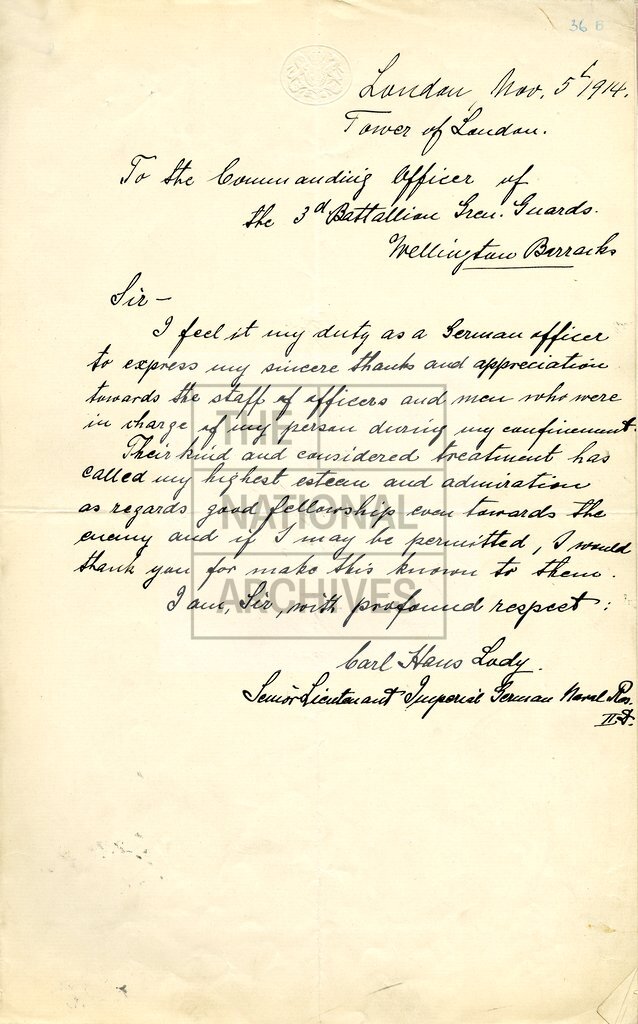 36 B
London, Nov. 5th 1914.
Tower of London.
To the Commanding Officer of
the 3d Battallion Gren. Guards.
Wellington Barracks
Sir -
I feel it my duty as a German officer
to express my sincere thanks and appreciation
towards the staff of officers and men who were
in charge of my person during my confinement.
Their kind and considered treatment has
called my highest esteem and admiration
as regards good fellowship even towards the
enemy and if I may be permitted, I would
thank you for make this known to them.
I am, Sir, with profound respect:
Carl Hans Lody.
Senior Lieutenant Imperial German Naval Res.
II D.
THE
NATIONAL
ARCHIVES